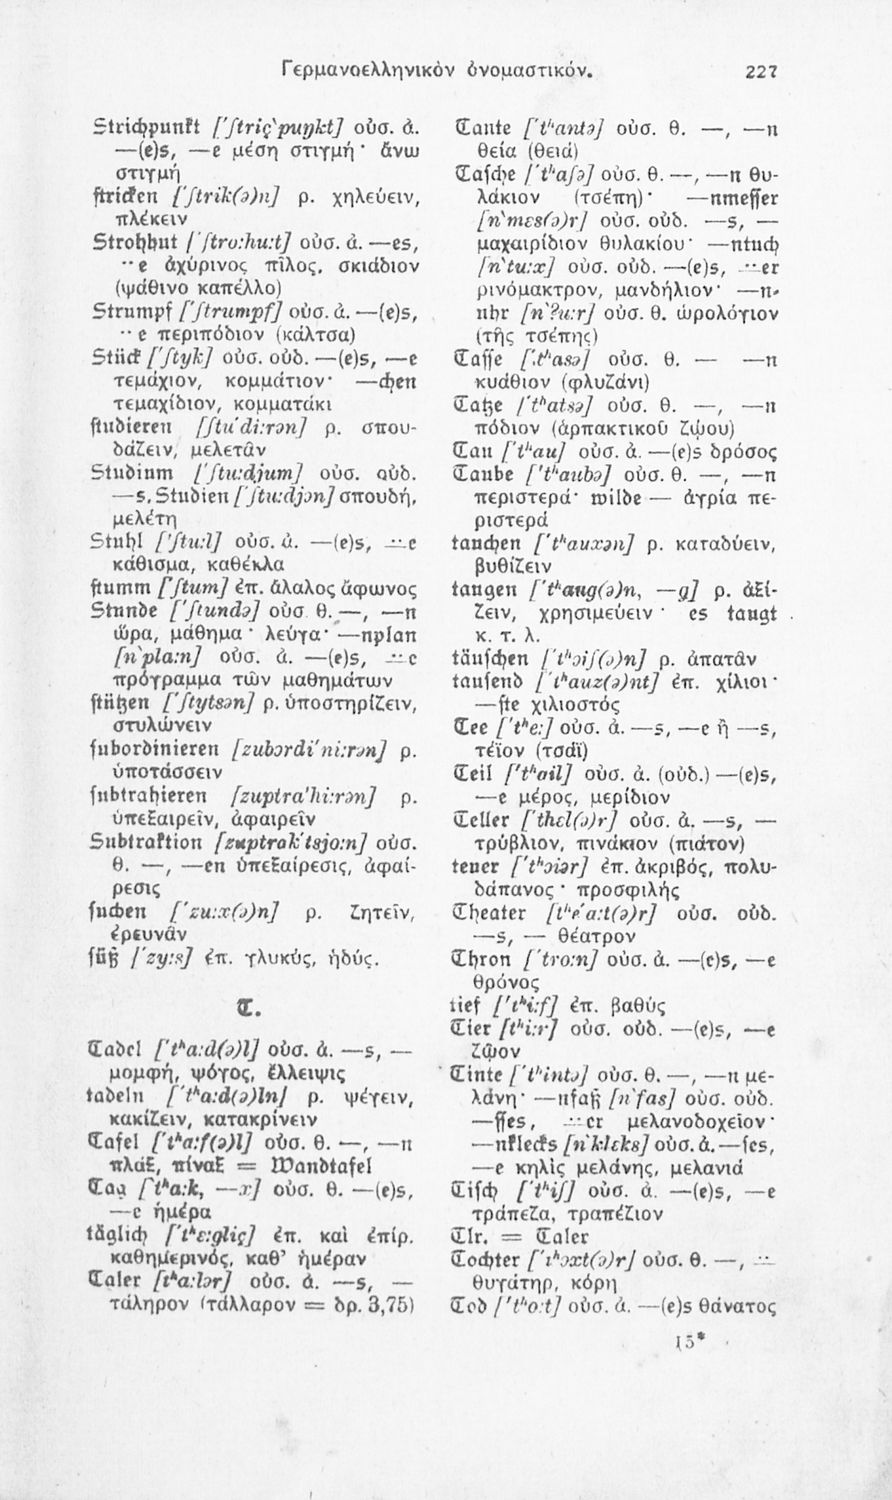 Γερμανοελληνικὸν ὀνομαστικόν. 227
Strichpunkt ['ʃtriç`puŋkt] οὐσ. ἀ.
—(e)s, —e μέση στιγμή· ἄνω
στιγμή
stricken ['ʃtrik(ə)n] ρ. χηλεύειν,
πλέκειν
Strohhut ['ʃtro:hu:t] οὐσ. ἀ. —es,
¨e ἀχύρινος πῖλος, σκιάδιον
(ψάθινο καπέλλο)
Strumpf ['ʃtrumpf] οὐσ. ἀ. —(e)s,
¨e περιπόδιον (κάλτσα)
Stück ['ʃtyk] οὐσ. οὐδ. —(e)s, —e
τεμάχιον, κομμάτιον· —chen
τεμαχίδιον, κομματάκι
studieren [ʃtu'di:rən] ρ. σπου-
δάζειν, μελετᾶν
Studium ['ʃtu:djum] οὐσ. οὐδ.
—s, Studien ['ʃtu:djən] σπουδή,
μελέτη
Stuhl ['ʃtu:l] οὐσ. ἀ. —(e)s, ¨e
κάθισμα, καθέκλα
stumm ['ʃtum] ἐπ. ἄλαλος ἄφωνος
Stunde ['ʃtundə] οὐσ θ. —, —n
ὥρα, μάθημα· λεύγα· —nplan
[n`pla:n] οὐσ. ἀ. —(e)s, ¨e
πρόγραμμα τῶν μαθημάτων
stützen ['ʃtytsən] ρ. ὑποστηρίζειν,
στυλώνειν
subordinieren [zubɔrdi'ni:rən] ρ.
ὑποτάσσειν
subtrahieren [zuptra'hi:rən] ρ.
ὑπεξαιρεῖν, ἀφαιρεῖν
Subtraktion [zuptrak'tsjo:n] οὐσ.
θ. —, —en ὑπεξαίρεσις, ἀφαί-
ρεσις
suchen ['zu:x(ə)n] ρ. ζητεῖν,
ἐρευνᾶν
süß ['zy:s] ἐπ. γλυκύς, ἡδύς.
T.
Tadel ['tʰa:d(ə)l] οὐσ. ἀ. —s, —
μομφή, ψόγος, ἔλλειψις
tadeln ['tʰa:d(ə)ln] ρ. ψέγειν,
κακίζειν, κατακρίνειν
Tafel ['tʰa:f(ə)l] οὐσ. θ. —, —n
πλάξ, πίναξ = Wandtafel
Tag ['tʰa:k, —x] οὐσ. θ. —(e)s,
—e ἡμέρα
täglich ['tʰɛ:gliç] ἐπ. καὶ ἐπίρ.
καθημερινός, καθ' ἡμέραν
Taler [tʰa:lər] οὐσ. ἀ. —s, —
τάληρον (τάλλαρον = δρ. 3,75)
Tante ['tʰantə] οὐσ. θ. —, —n
θεία (θειά)
Tasche ['tʰaʃə] οὐσ. θ. —, —n θυ-
λάκιον (τσέπη)· —nmesser
[n`mɛs(ə)r] οὐσ. οὐδ. —s, —
μαχαιρίδιον θυλακίου· —ntuch
[n`tu:x] οὐσ. οὐδ. —(e)s, ¨er
ρινόμακτρον, μανδήλιον· —n-
uhr [n`ʔu:r] οὐσ. θ. ὡρολόγιον
(τῆς τσέπης)
Tasse ['tʰasə] οὐσ. θ. — —n
κυάθιον (φλυζάνι)
Tatze ['tʰatsə] οὐσ. θ. —, —n
πόδιον (ἁρπακτικοῦ ζῴου)
Tau ['tʰau] οὐσ. ἀ. —(e)s δρόσος
Taube ['tʰaubə] οὐσ. θ. —, —n
περιστερά· wilde — ἀγρία πε-
ριστερά
tauchen ['tʰauxən] ρ. καταδύειν,
βυθίζειν
taugen ['tʰaug(ə)n, —g] ρ. ἀξί-
ζειν, χρησιμεύειν· es taugt
κ. τ. λ.
täuschen ['tʰɔiʃ(ə)n] ρ. ἀπατᾶν
tausend ['tʰauz(ə)nt] ἐπ. χίλιοι·
—ste χιλιοστός
Tee ['tʰe:] οὐσ. ἀ. —s, —e ἢ —s,
τέϊον (τσάϊ)
Teil ['tʰail] οὐσ. ἀ. (οὐδ.) —(e)s,
—e μέρος, μερίδιον
Teller ['thɛl(ə)r] οὐσ. ἀ. —s, —
τρύβλιον, πινάκιον (πιάτον)
teuer ['tʰɔiər] ἐπ. ἀκριβός, πολυ-
δάπανος· προσφιλής
Theater [tʰe'a:t(ə)r] οὐσ. οὐδ.
—s, — θέατρον
Thron ['tro:n] οὐσ. ἀ. —(e)s, —e
θρόνος
tief ['tʰi:f] ἐπ. βαθύς
Tier [tʰi:r] οὐσ. οὐδ. —(e)s, —e
ζῷον
Tinte ['tʰintə] οὐσ. θ. —, —n με-
λάνη· —nfaß [n`fas] οὐσ. οὐδ.
—sses, ¨er μελανοδοχεῖον·
—nklecks [n`klɛks] οὐσ. ἀ. —ses,
—e κηλὶς μελάνης, μελανιά
Tisch ['tʰiʃ] οὐσ. ἀ. —(e)s, —e
τράπεζα, τραπέζιον
Tlr. = Taler
Tochter ['tʰɔxt(ə)r] οὐσ. θ. —, ¨
θυγάτηρ, κόρη
Tod ['tʰo:t] οὐσ. ἀ. —(e)s θάνατος
15*